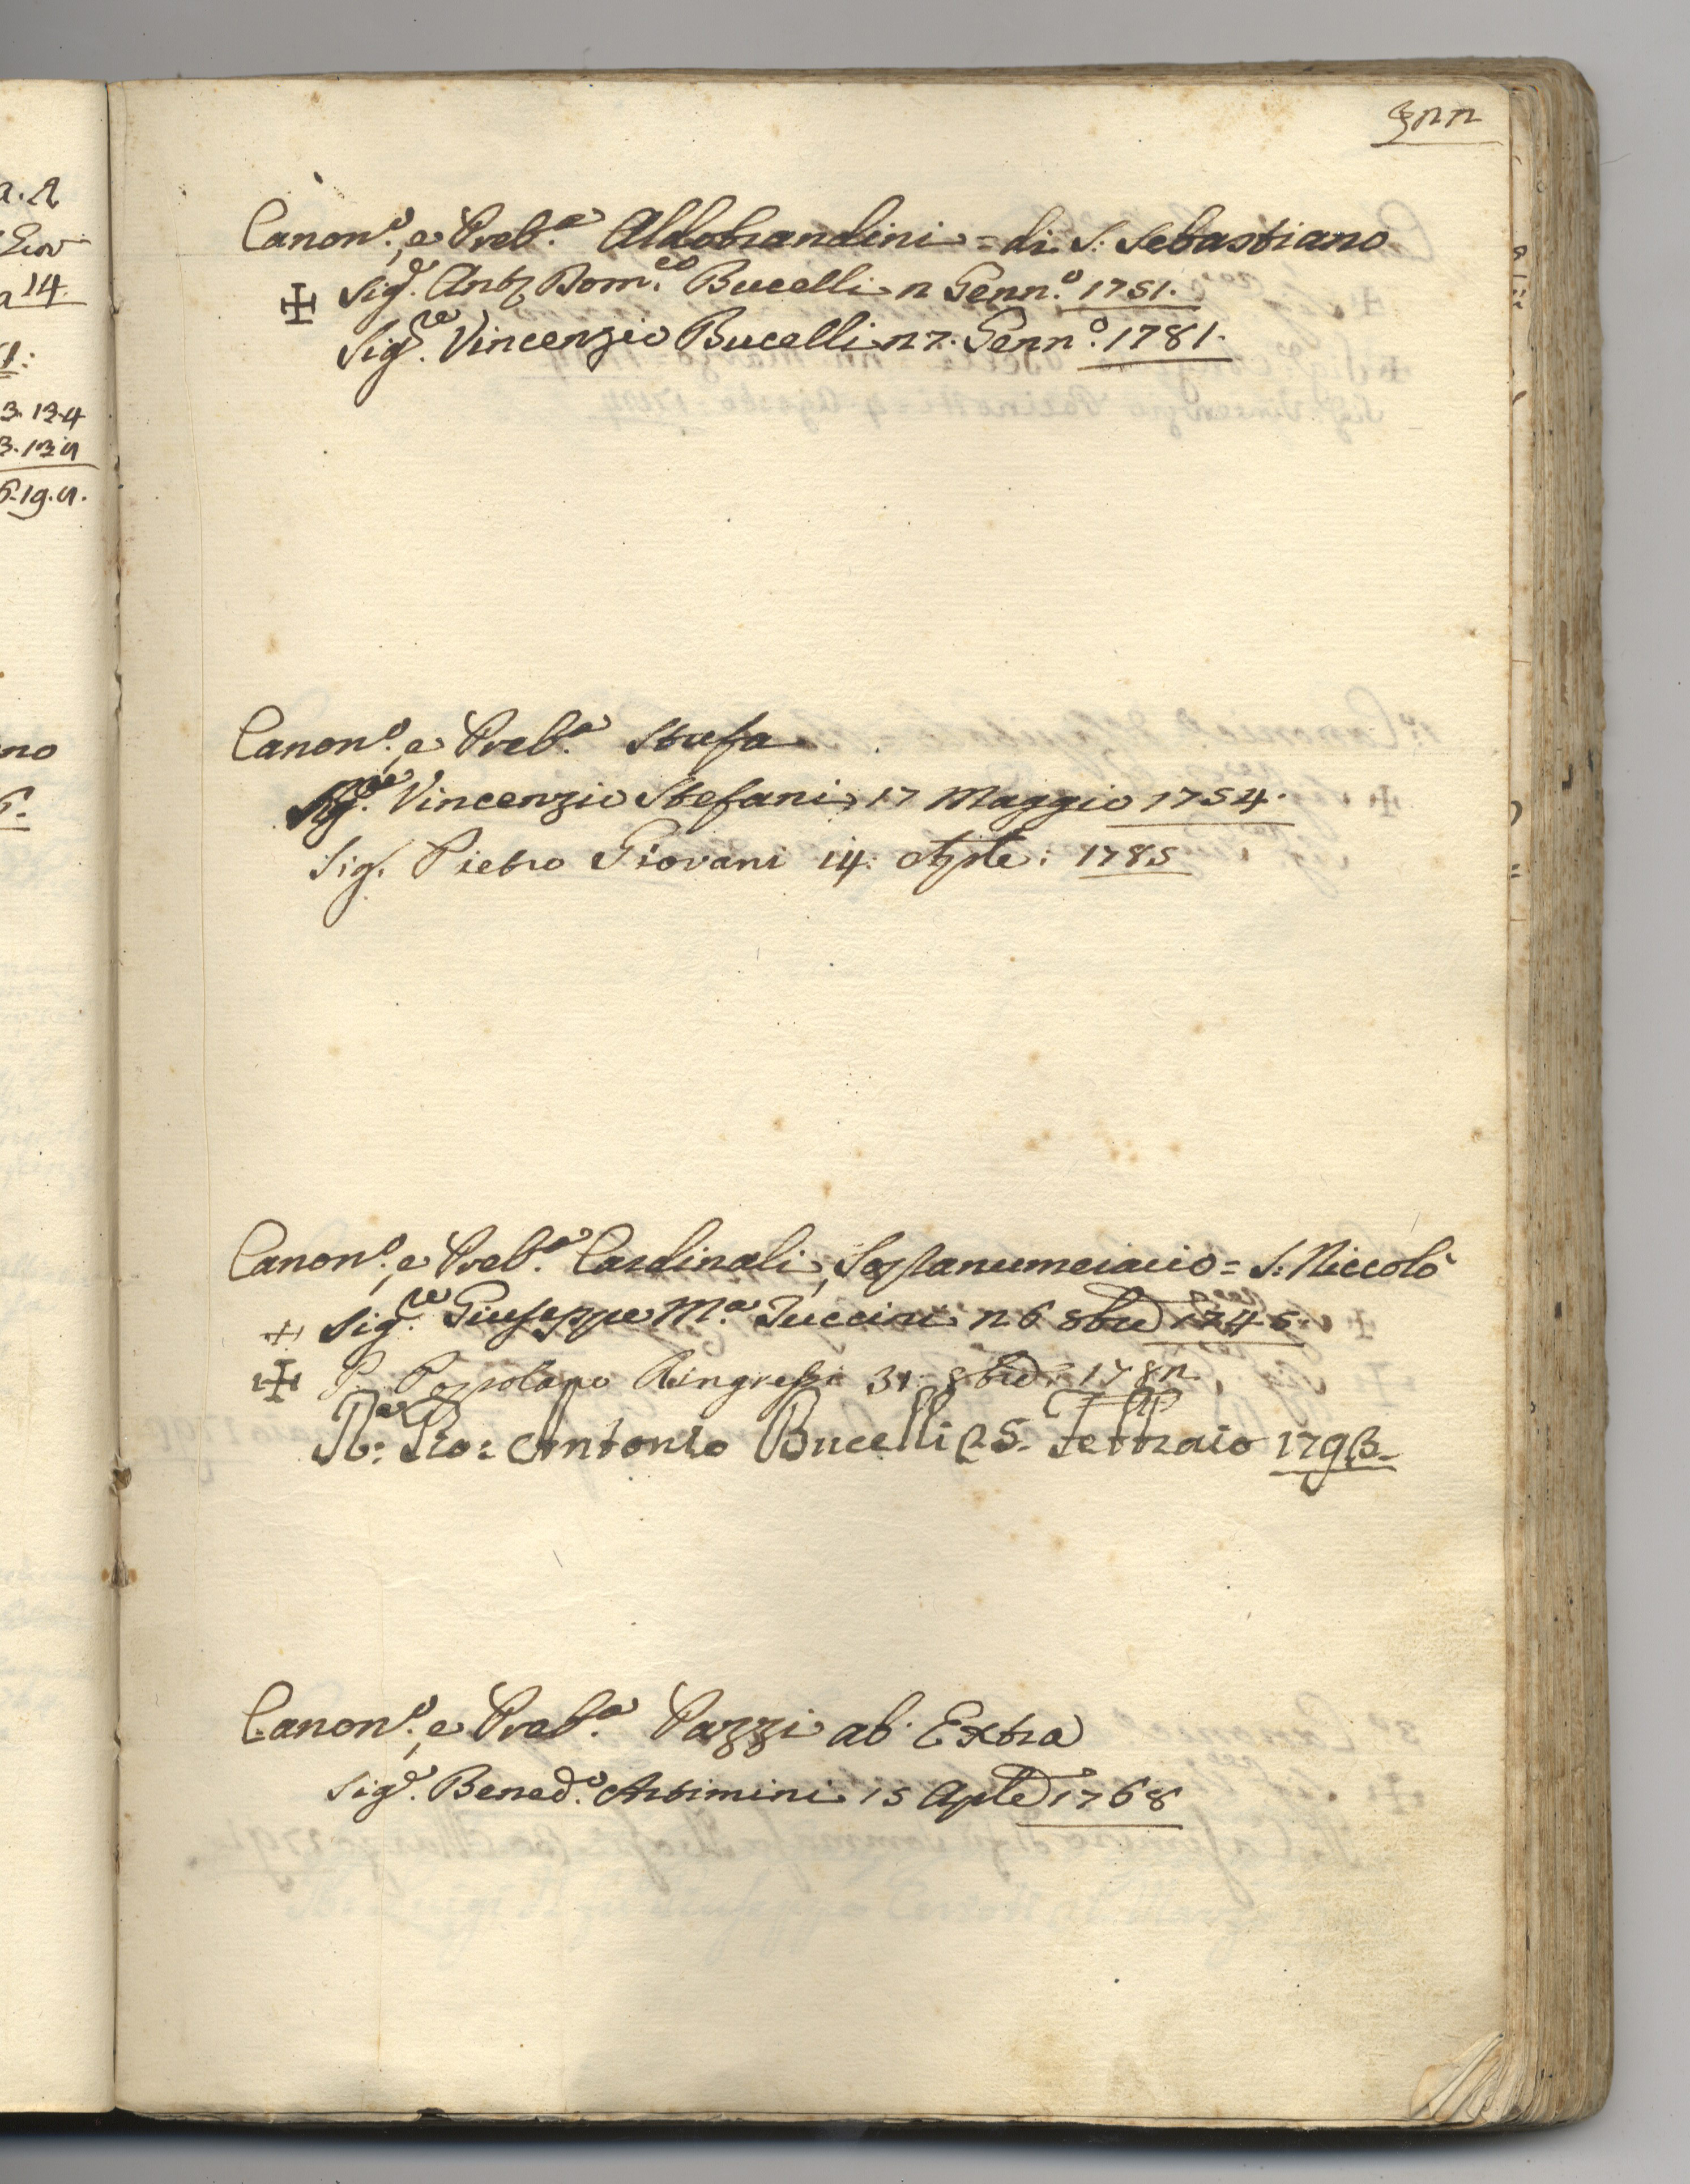 322
a. 2
14.
Canon.º, e Preb.ª Aldobrandini = di S. Sebastiano
✠ Sig.e Antº Dom.co Bucelli 2 Genn.º 1751.
Sig.re Vincenzio Bucelli 27. Genn.º 1781.
3. 13.4
6.19.9.
Canon.º, e Preb.ª Stufa
no
Sig.re Vincenzio Stefani 17 Maggio 1754.
Sig. Pietro Giovani 14. Aple: 1785
Canon.º, e Preb.ª Cardinali, Sopranumerario = S. Niccolò
✠ Sig.re Giuseppe M.ª Tuccini 26 8bre 1746.
✠ P. Ringressi 31 8bre 1782
R: Pro: Antonio Bucelli 25. Febbraio 1793.
Canon.º, e Preb.ª Pazzi ab Extra
Sig.e Bened.º Artimini 15 Aple 1768